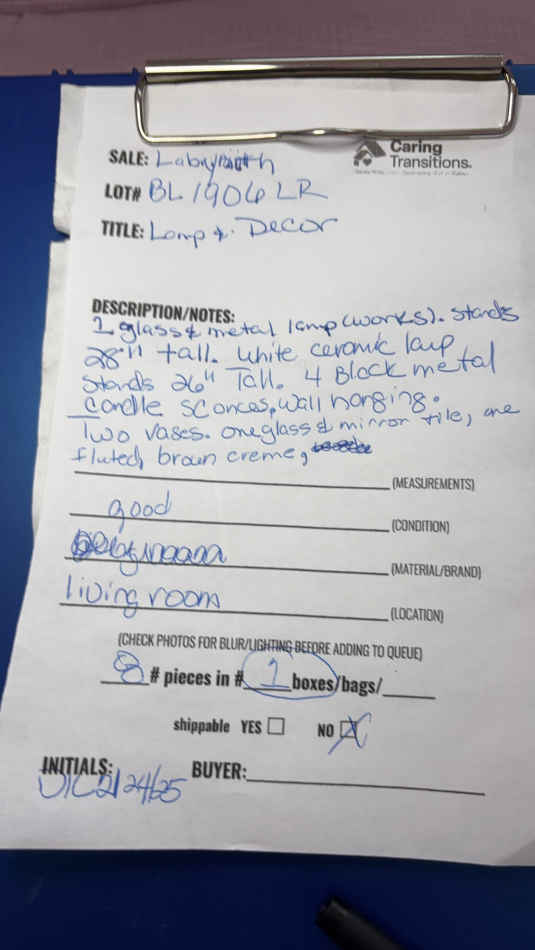 Caring
Transitions.
SALE: Labyrinth
LOT# BL 1906 LR
TITLE: Lamp &. Decor
DESCRIPTION/NOTES:
1 glass & metal lamp (works). Stands
28" tall. White ceramic lamp
Stands 26" Tall. 4 Black metal
Candle sconces, wall hanging.
Two vases. one glass & mirror tile, one
fluted, brown creme,
(MEASUREMENTS)
good
(CONDITION)
(MATERIAL/BRAND)
living room
(LOCATION)
(CHECK PHOTOS FOR BLUR/LIGHTING BEFORE ADDING TO QUEUE)
8 # pieces in # 1 boxes/bags/
shippable YES ☐ NO ☒
INITIALS: BUYER:
2/24/25